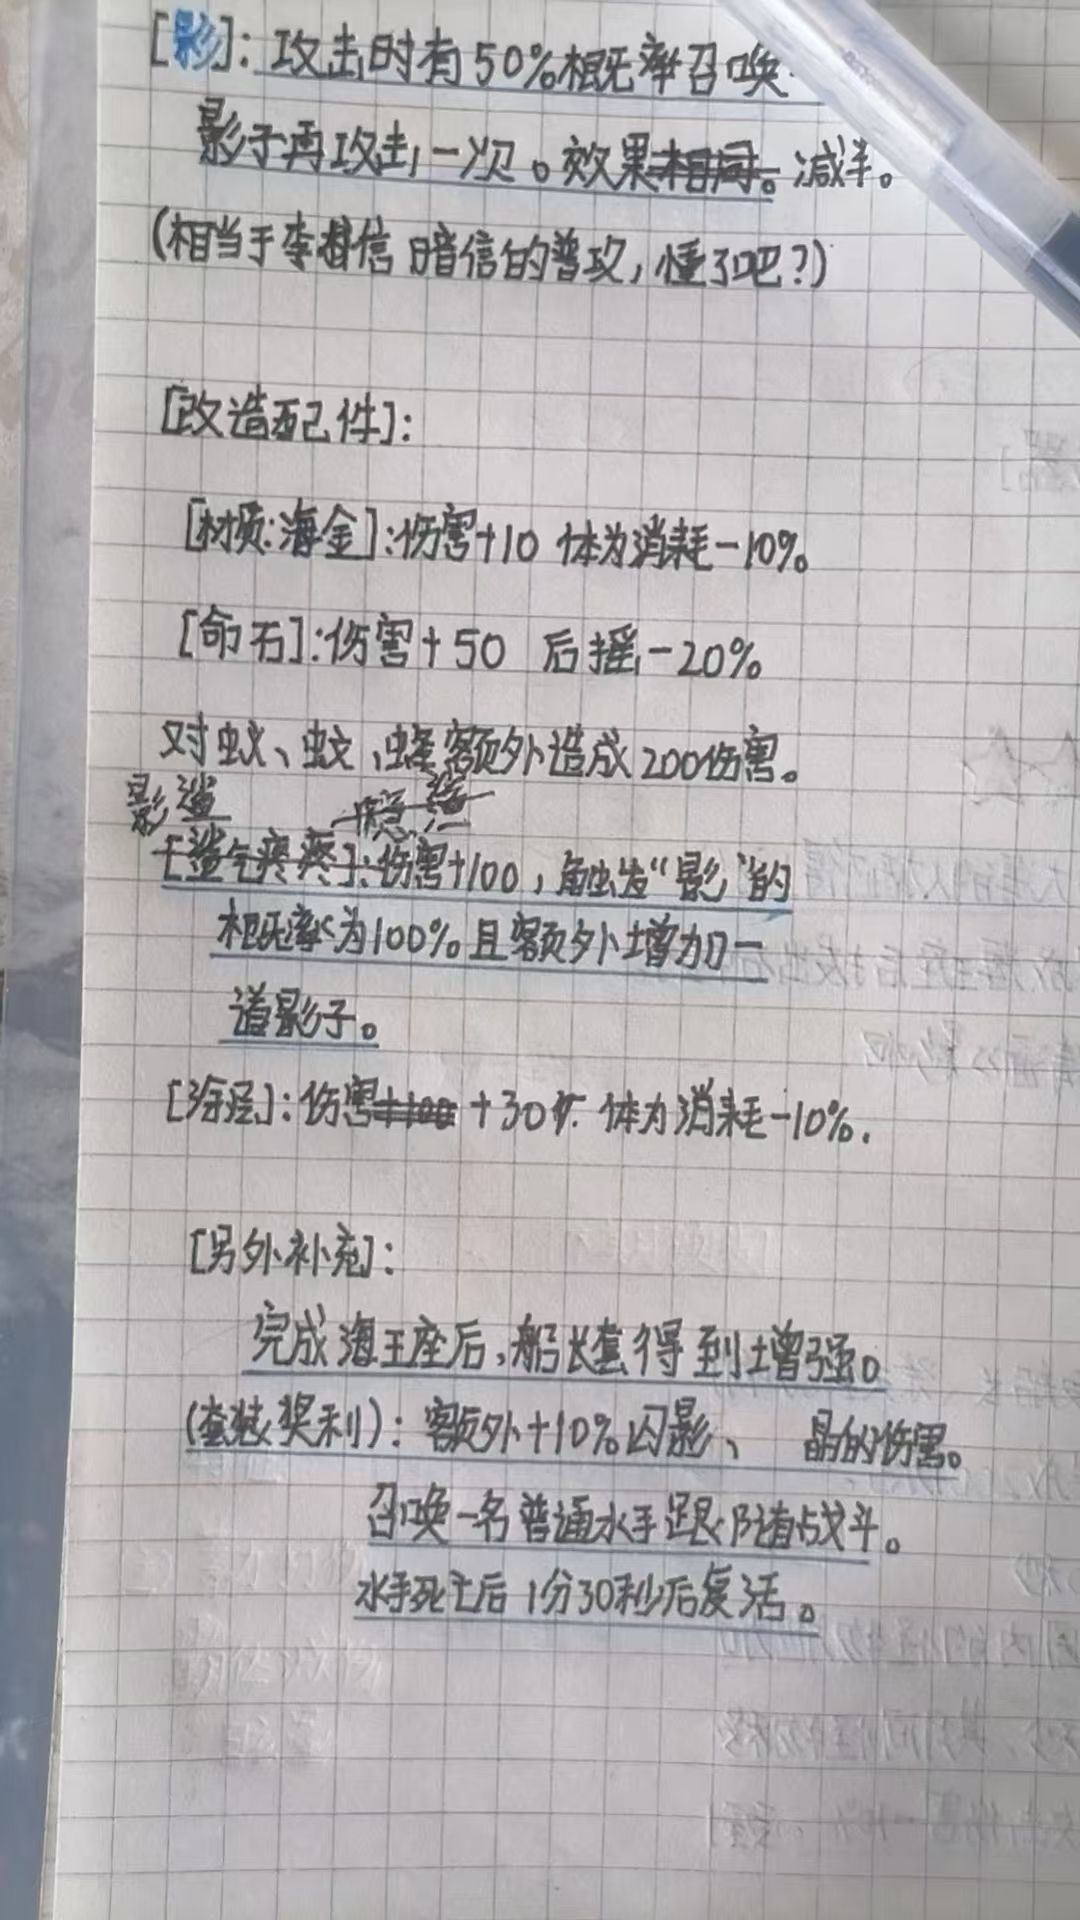 [影]: 攻击时有50%概率召唤
影子再攻击一次。效果相同。减半。
(相当于李想信 暗信的普攻, 懂了吧?)
[改造配件]:
[材质:海金]:伤害+10 体力消耗-10%。
[命石]:伤害+50 后摇-20%
对蚁、蚊、蜂额外造成200伤害。
影鲨
[鲨气疼疼]:伤害+100, 触发“影”的
概率为100%且额外增加一
道影子。
[涂层]: 伤害+100 +30%. 体力消耗-10%.
[另外补充]:
完成海王座后, 船长套得到增强。
(套装奖利): 额外+10%闪影、 晶的伤害。
召唤一名普通水手跟随战斗。
水手死亡后1分30秒后复活。